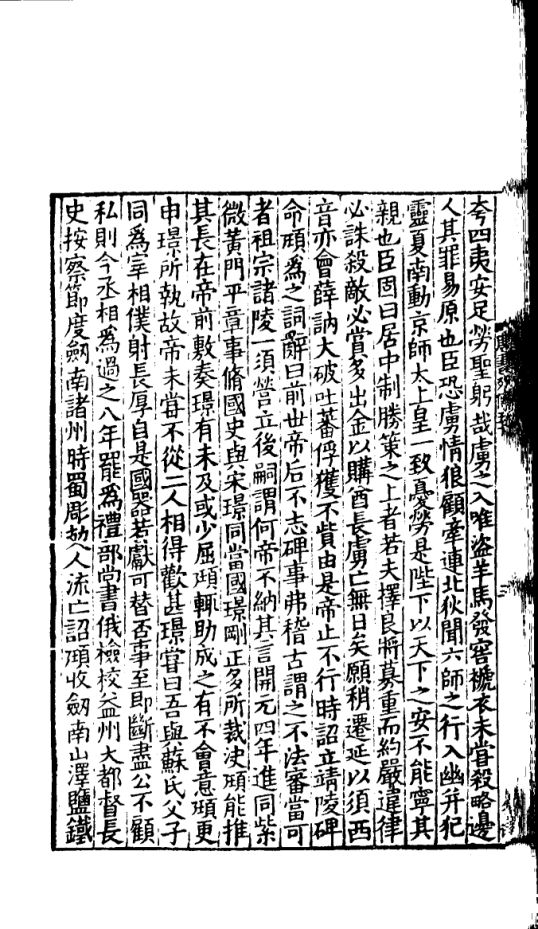 夸四夷安足勞聖躬哉虜之入唯盜羊馬發窖褫衣未甞殺略邊
人其罪易原也臣恐虜情狼顧牽連北狄聞六師之行入幽并犯
靈夏南動京師太上皇一致憂勞是陛下以天下之安不能寧其
親也臣固曰居中制勝策之上者若夫擇良將募重而約嚴違律
必誅殺敵必賞多出金以購酋長虜亡無日矣願稍遷延以須西
音亦會薛訥大破吐蕃俘獲不貲由是帝止不行時詔立靖陵碑
命頲為之詞辭曰前世帝后不志碑事弗稽古謂之不法審當可
者祖宗諸陵一須營立後嗣謂何帝不納其言開元四年進同紫
微黃門平章事脩國史與宋璟同當國璟剛正多所裁決頲能推
其長在帝前敷奏璟有未及或少屈頲輒助成之有不會意頲更
申璟所執故帝未甞不從二人相得歡甚璟甞曰吾與蘇氏父子
同為宰相僕射長厚自是國器若獻可替否事至即斷盡公不顧
私則今丞相為過之八年罷為禮部尚書俄檢校益州大都督長
史按察節度劔南諸州時蜀彫劫人流亡詔頲收劔南山澤鹽鐵